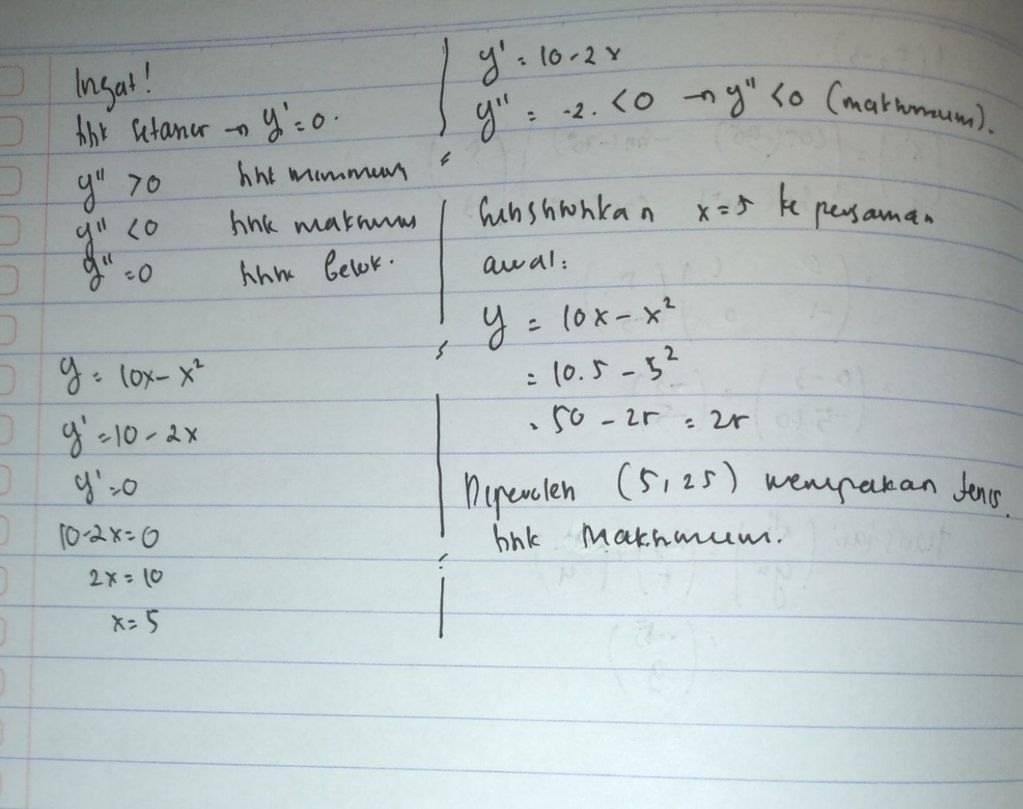 Ingat!
titik stasioner → y' = 0.
y" > 0 titik minimum
y" < 0 titik maksimum
y" = 0 titik belok.
y = 10x - x²
y' = 10 - 2x
y' = 0
10 - 2x = 0
2x = 10
x = 5
y' = 10 - 2x
y" = -2. < 0 → y" < 0 (maksimum).
Subsitusikan x = 5 ke persamaan
awal:
y = 10x - x²
= 10.5 - 5²
= 50 - 25 = 25
Diperoleh (5,25) merupakan jenis
titik maksimum.